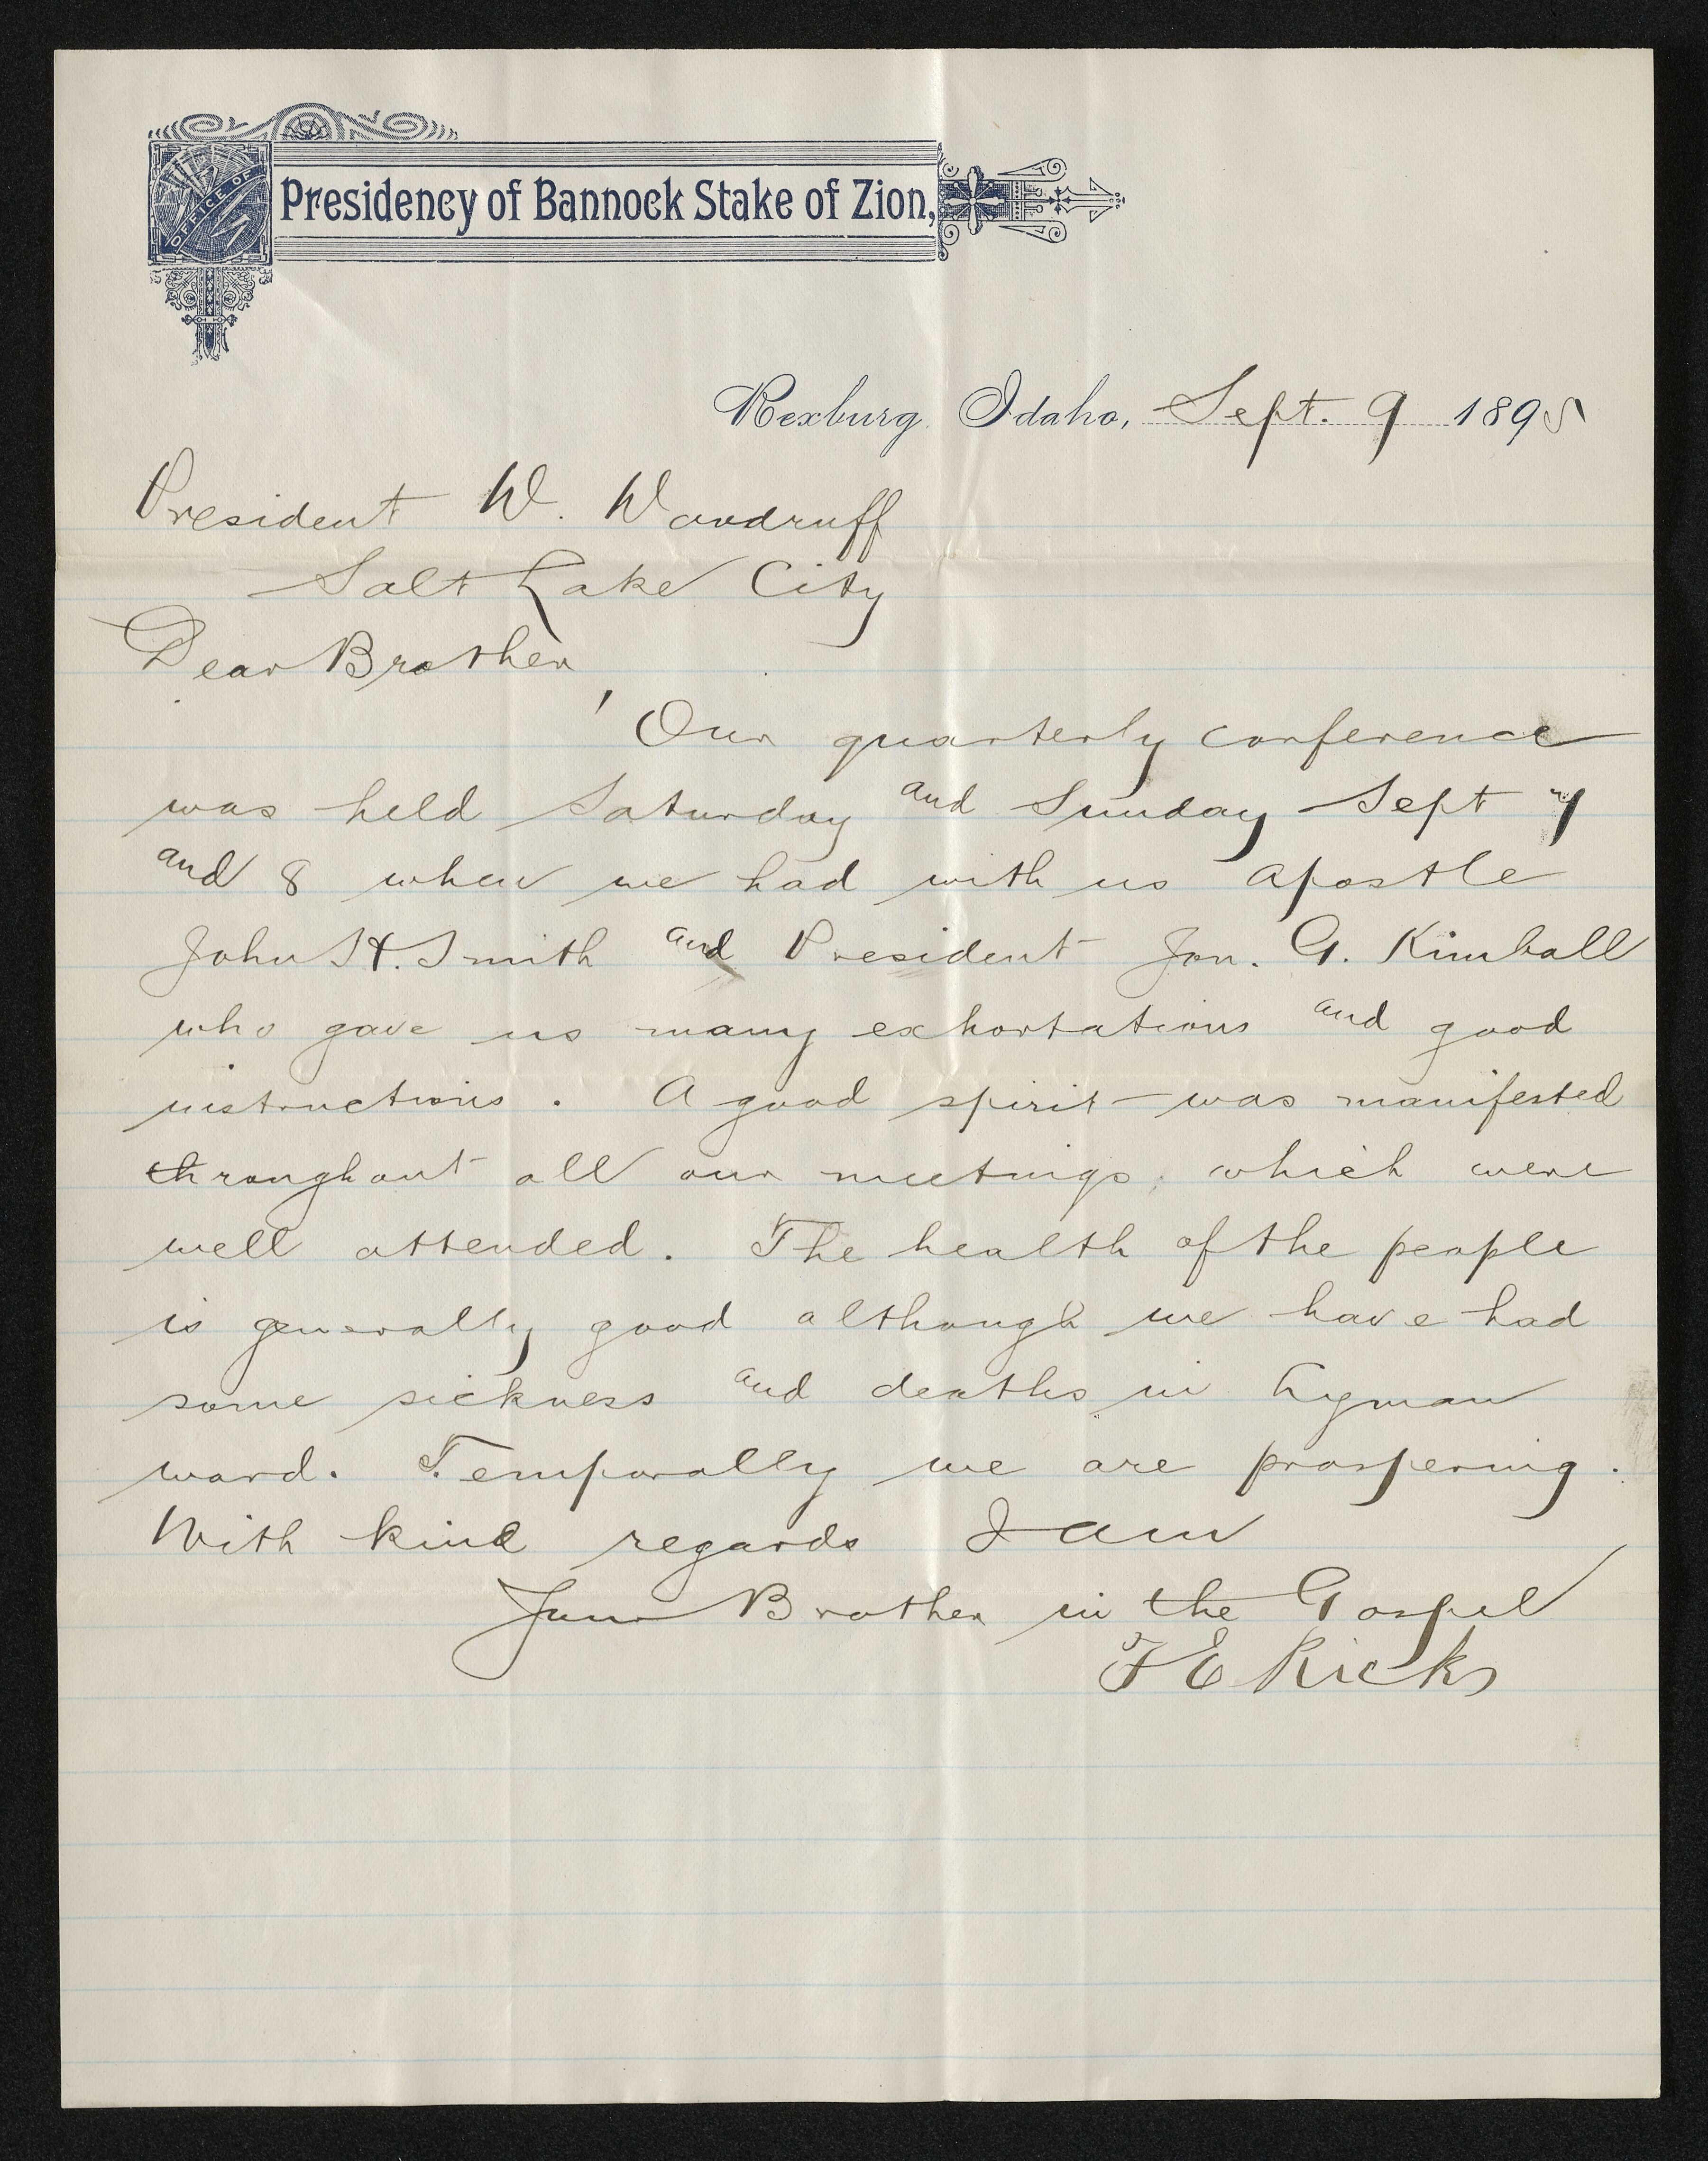 OFFICE OF
Presidency of Bannock Stake of Zion,
Rexburg, Idaho, Sept. 9 1895
President W. Woodruff
Salt Lake City
Dear Brother
Our quarterly conference
was held Saturday and Sunday Sept 7
and 8 when we had with us apostle
John H. Smith and President Jon. G. Kimball
who gave us many exhortations and good
instructions. A good spirit was manifested
throughout all our meetings, which were
well attended. The health of the people
is generally good although we have had
some sickness and deaths in Lyman
ward. Temporally we are prospering.
With kind regards I am
Your Brother in the Gospel
T E Ricks